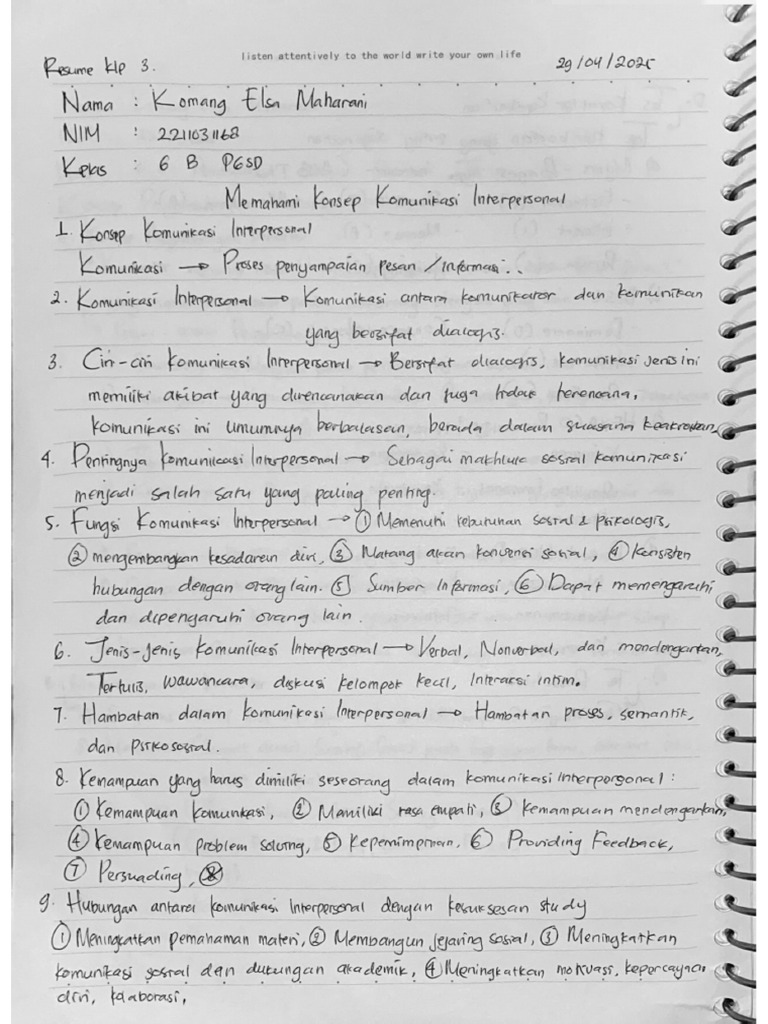 listen attentively to the world write your own life
Resume klp 3. 29/04/2025
Nama : Komang Elsa Maharani
NIM : 2211031168
Kelas : 6 B PGSD
Memahami Konsep Komunikasi Interpersonal
1. Konsep Komunikasi Interpersonal
Komunikasi → Proses penyampaian pesan / Informasi..
2. Komunikasi Interpersonal → Komunikasi antara komunikator dan komunikan
yang bersifat dialogis.
3. Ciri-ciri Komunikasi Interpersonal → Bersifat dialogis, komunikasi jenis ini
memiliki akibat yang direncanakan dan juga tidak terencana,
komunikasi ini umumnya berbalasan, berada dalam suasana keakraban,
4. Pentingnya Komunikasi Interpersonal → Sebagai makhluk sosial komunikasi
menjadi salah satu yang paling penting.
5. Fungsi Komunikasi Interpersonal → ① Memenuhi kebutuhan sosial & psikologis,
② mengembangkan kesadaran diri, ③ Matang akan konvensi sosial, ④ Konsisten
hubungan dengan orang lain. ⑤ Sumber Informasi, ⑥ Dapat memengaruhi
dan dipengaruhi orang lain.
6. Jenis-jenis Komunikasi Interpersonal → Verbal, Nonverbal, dan mendengarkan,
Tertulis, wawancara, diskusi kelompok kecil, Interaksi intim.
7. Hambatan dalam komunikasi Interpersonal → Hambatan proses, semantik,
dan psikososial.
8. Kemampuan yang harus dimiliki seseorang dalam komunikasi interpersonal :
① Kemampuan komunikasi, ② Memiliki rasa empati, ③ Kemampuan mendengarkan,
④ Kemampuan problem solving, ⑤ Kepemimpinan, ⑥ Providing Feedback,
⑦ Persuading,
9. Hubungan antara komunikasi Interpersonal dengan kesuksesan study
① Meningkatkan pemahaman materi, ② Membangun jejaring sosial, ③ Meningkatkan
komunikasi sosial dan dukungan akademik, ④ Meningkatkan motivasi, kepercayaan
diri, kolaborasi,